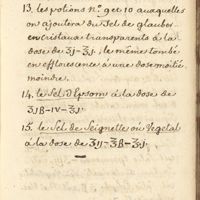 13. les potions n.º 9 et 10 auxquelles
on ajoutera du Sel de glauber
en cristaux transparents à la
dose de ʒj-℥j. le même tombé
en efflorescence à une dose moitié
moindre.
14. le Sel d'Epsom à la dose de
ʒjß-IV-℥j.
15. le Sel de Seignette ou Vegetal
à la dose de ʒij-℥ß-℥j.